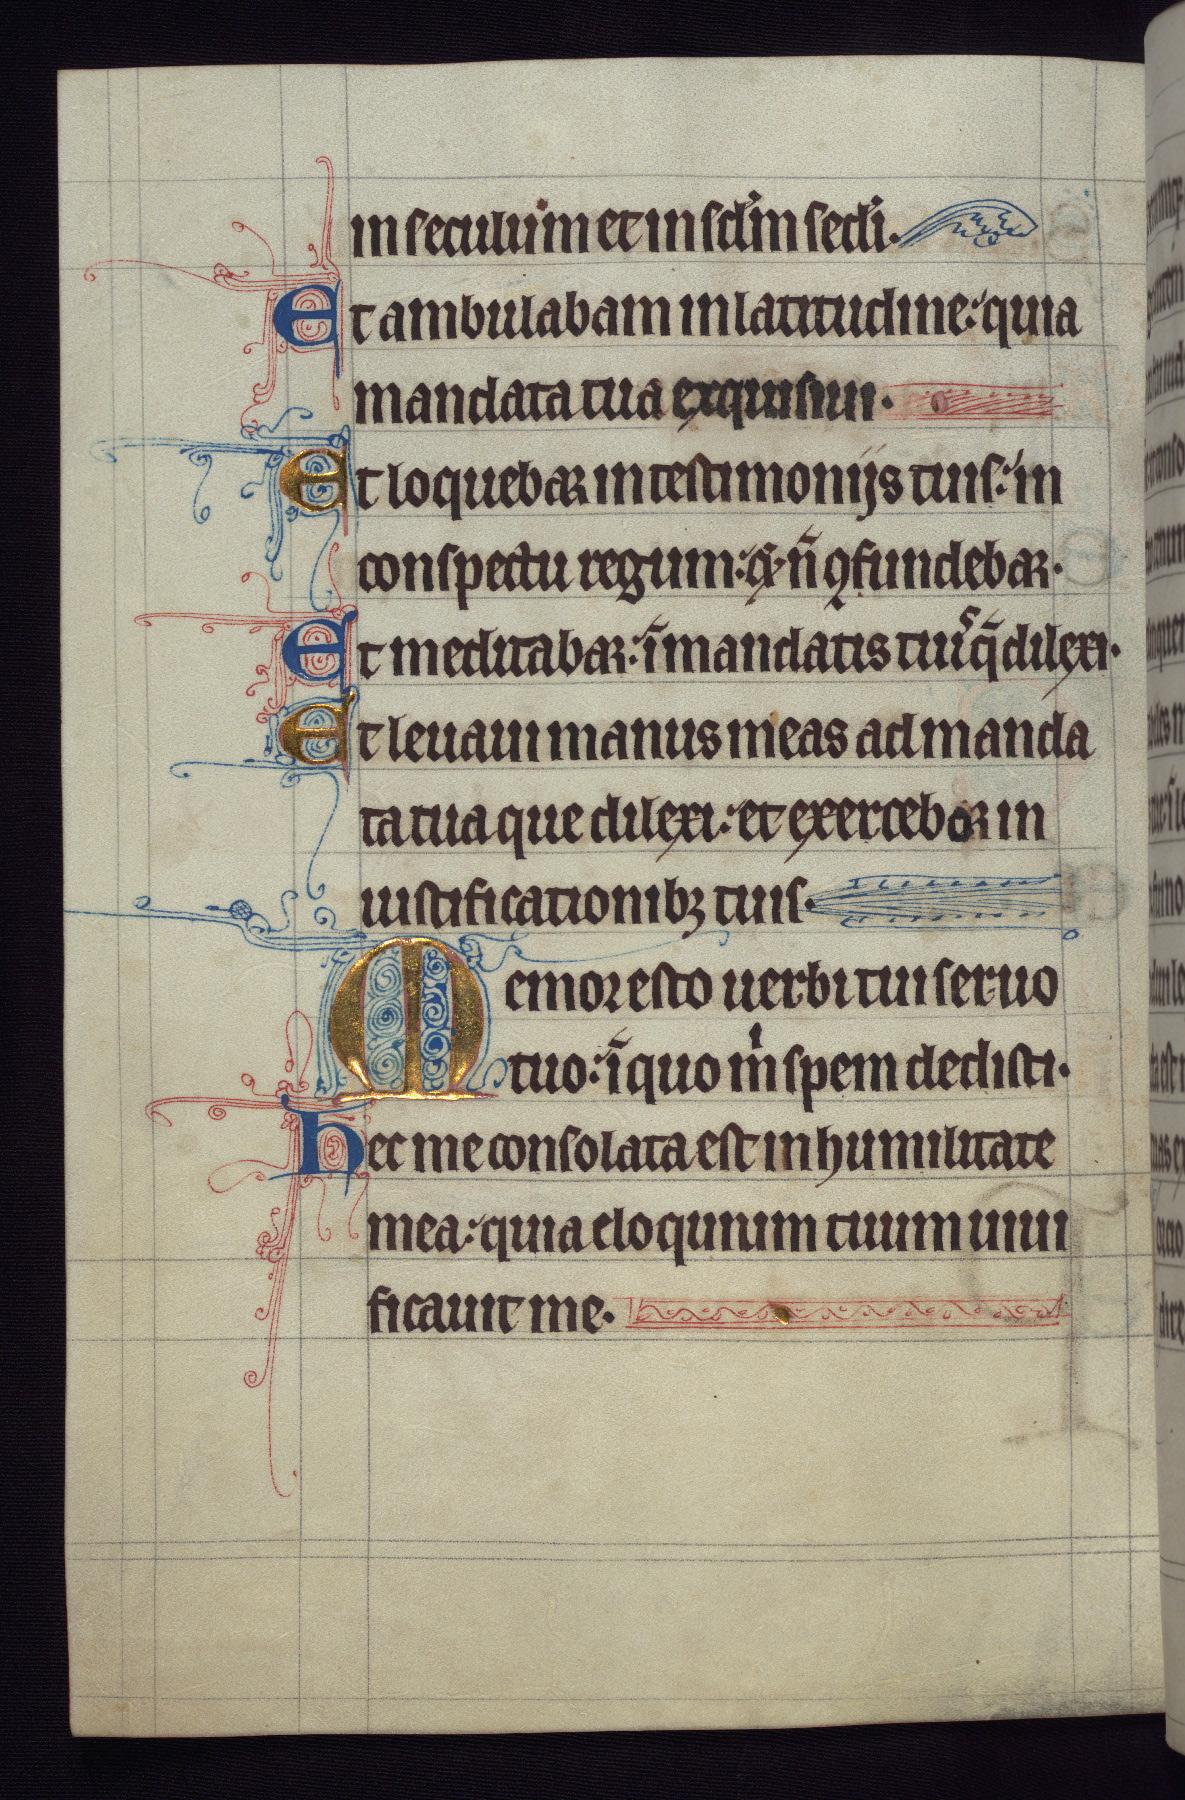 in seculum et in scl̃m secli.
Et ambulabam in latitudine: quia
mandata tua exquisiui.
Et loquebar in testimonijs tuis: in
conspectu regum: ⁊ ñ ꝯfundebar.
Et meditabar: ĩ mandatis tuis q̃ dilexi.
Et leuaui manus meas ad manda
ta tua que dilexi: et exercebor in
iustificationibꝫ tuis.
Memor esto uerbi tui seruo
tuo: ĩ quo m̍ spem dedisti.
Hec me consolata est in humilitate
mea: quia eloquium tuum uiui
ficauit me.